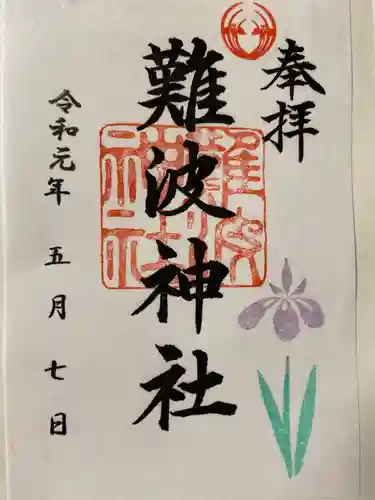 奉拝
難波神社
難波神社
令和元年 五月 七日